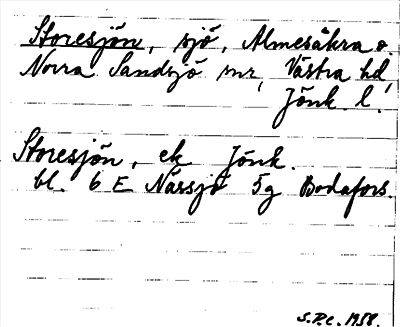 Storesjön, sjö, Almesåkra o.
Norra Sandsjö snr, Västra hd,
Jönk. l.
Storesjön, ek Jönk.
bl. 6 E Nässjö 5g Bodafors.
S.P.C. 1958.